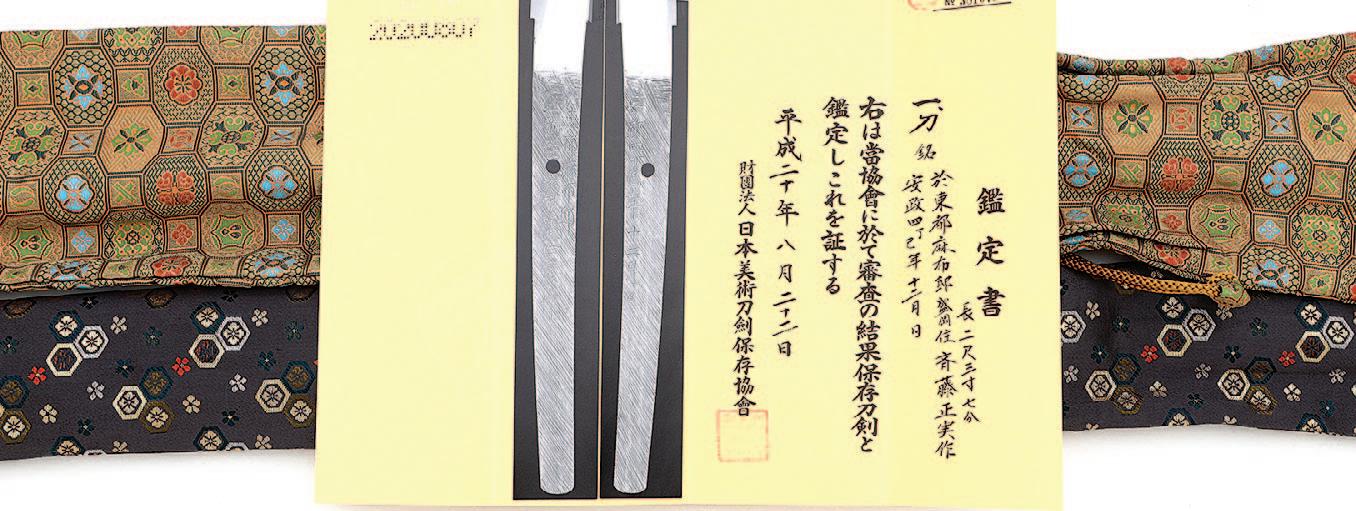 20200807
鑑定書
一、刀 銘 於東都麻布邸盛岡住斉藤正実作
安政四丁巳年十二月日
長二尺三寸七分
右は當協會に於て審査の結果保存刀剣と
鑑定しこれを証する
平成二十年八月二十二日
財團法人日本美術刀劍保存協會